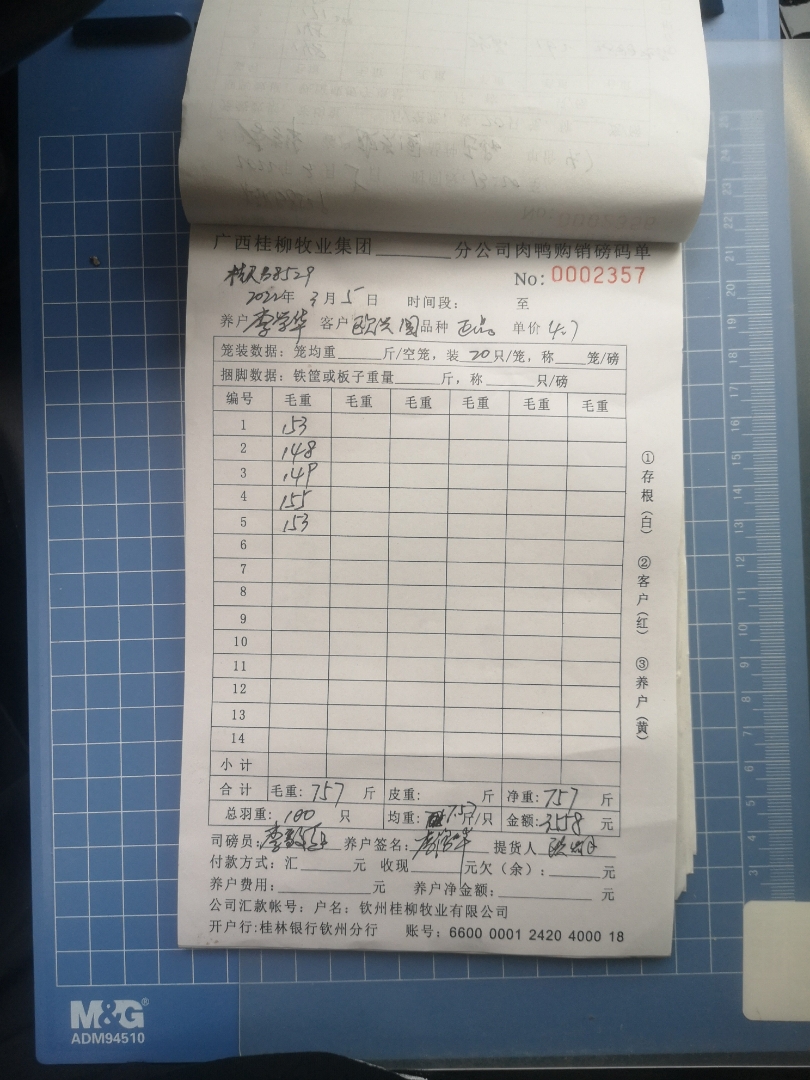 广西桂柳牧业集团________分公司肉鸭购销磅码单
No: 0002357
2022年 3月 5日 时间段: 至
养户 李学华 客户 品种 单价 4.7
笼装数据: 笼均重____斤/空笼, 装 20 只/笼, 称____笼/磅
捆脚数据: 铁筐或板子重量____斤, 称____只/磅
编号 毛重 毛重 毛重 毛重 毛重 毛重
1 153
2 148
3 149
4 155
5 153
6
7
8
9
10
11
12
13
14
小计
合计 毛重: 757 斤 皮重: 斤 净重: 757 斤
总羽重: 100 只 均重: 7.57 斤/只 金额: 3558 元
司磅员: 养户签名: 提货人
付款方式: 汇____元 收现____元欠(余): ____元
养户费用: ____元 养户净金额: ____元
公司汇款帐号: 户名: 钦州桂柳牧业有限公司
开户行:桂林银行钦州分行 账号: 6600 0001 2420 4000 18
①存根(白) ②客户(红) ③养户(黄)
M&G®
ADM94510